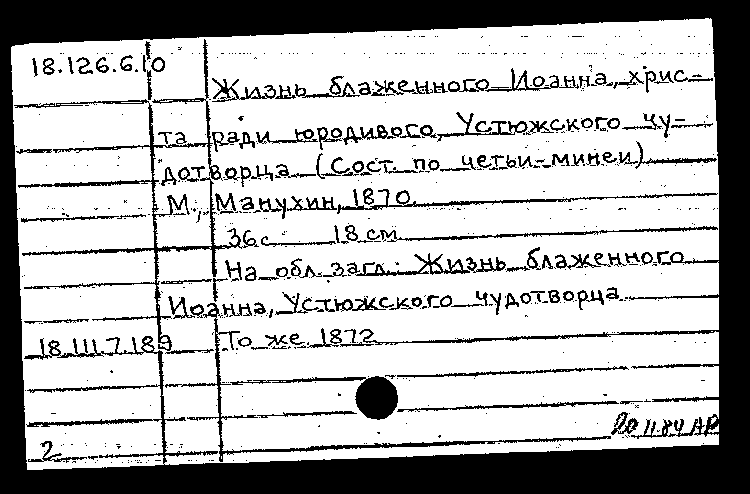 18.126.6.10
Жизнь блаженного Иоанна, хрис-
та ради юродивого, Устюжского чу-
дотворца (Сост. по четьи-минеи)
М., Манухин, 1870.
36 с. 18 см.
На обл. загл.: Жизнь блаженного
Иоанна, Устюжского чудотворца
18.111.7.189 То же 1872
20 11.84 АР
2